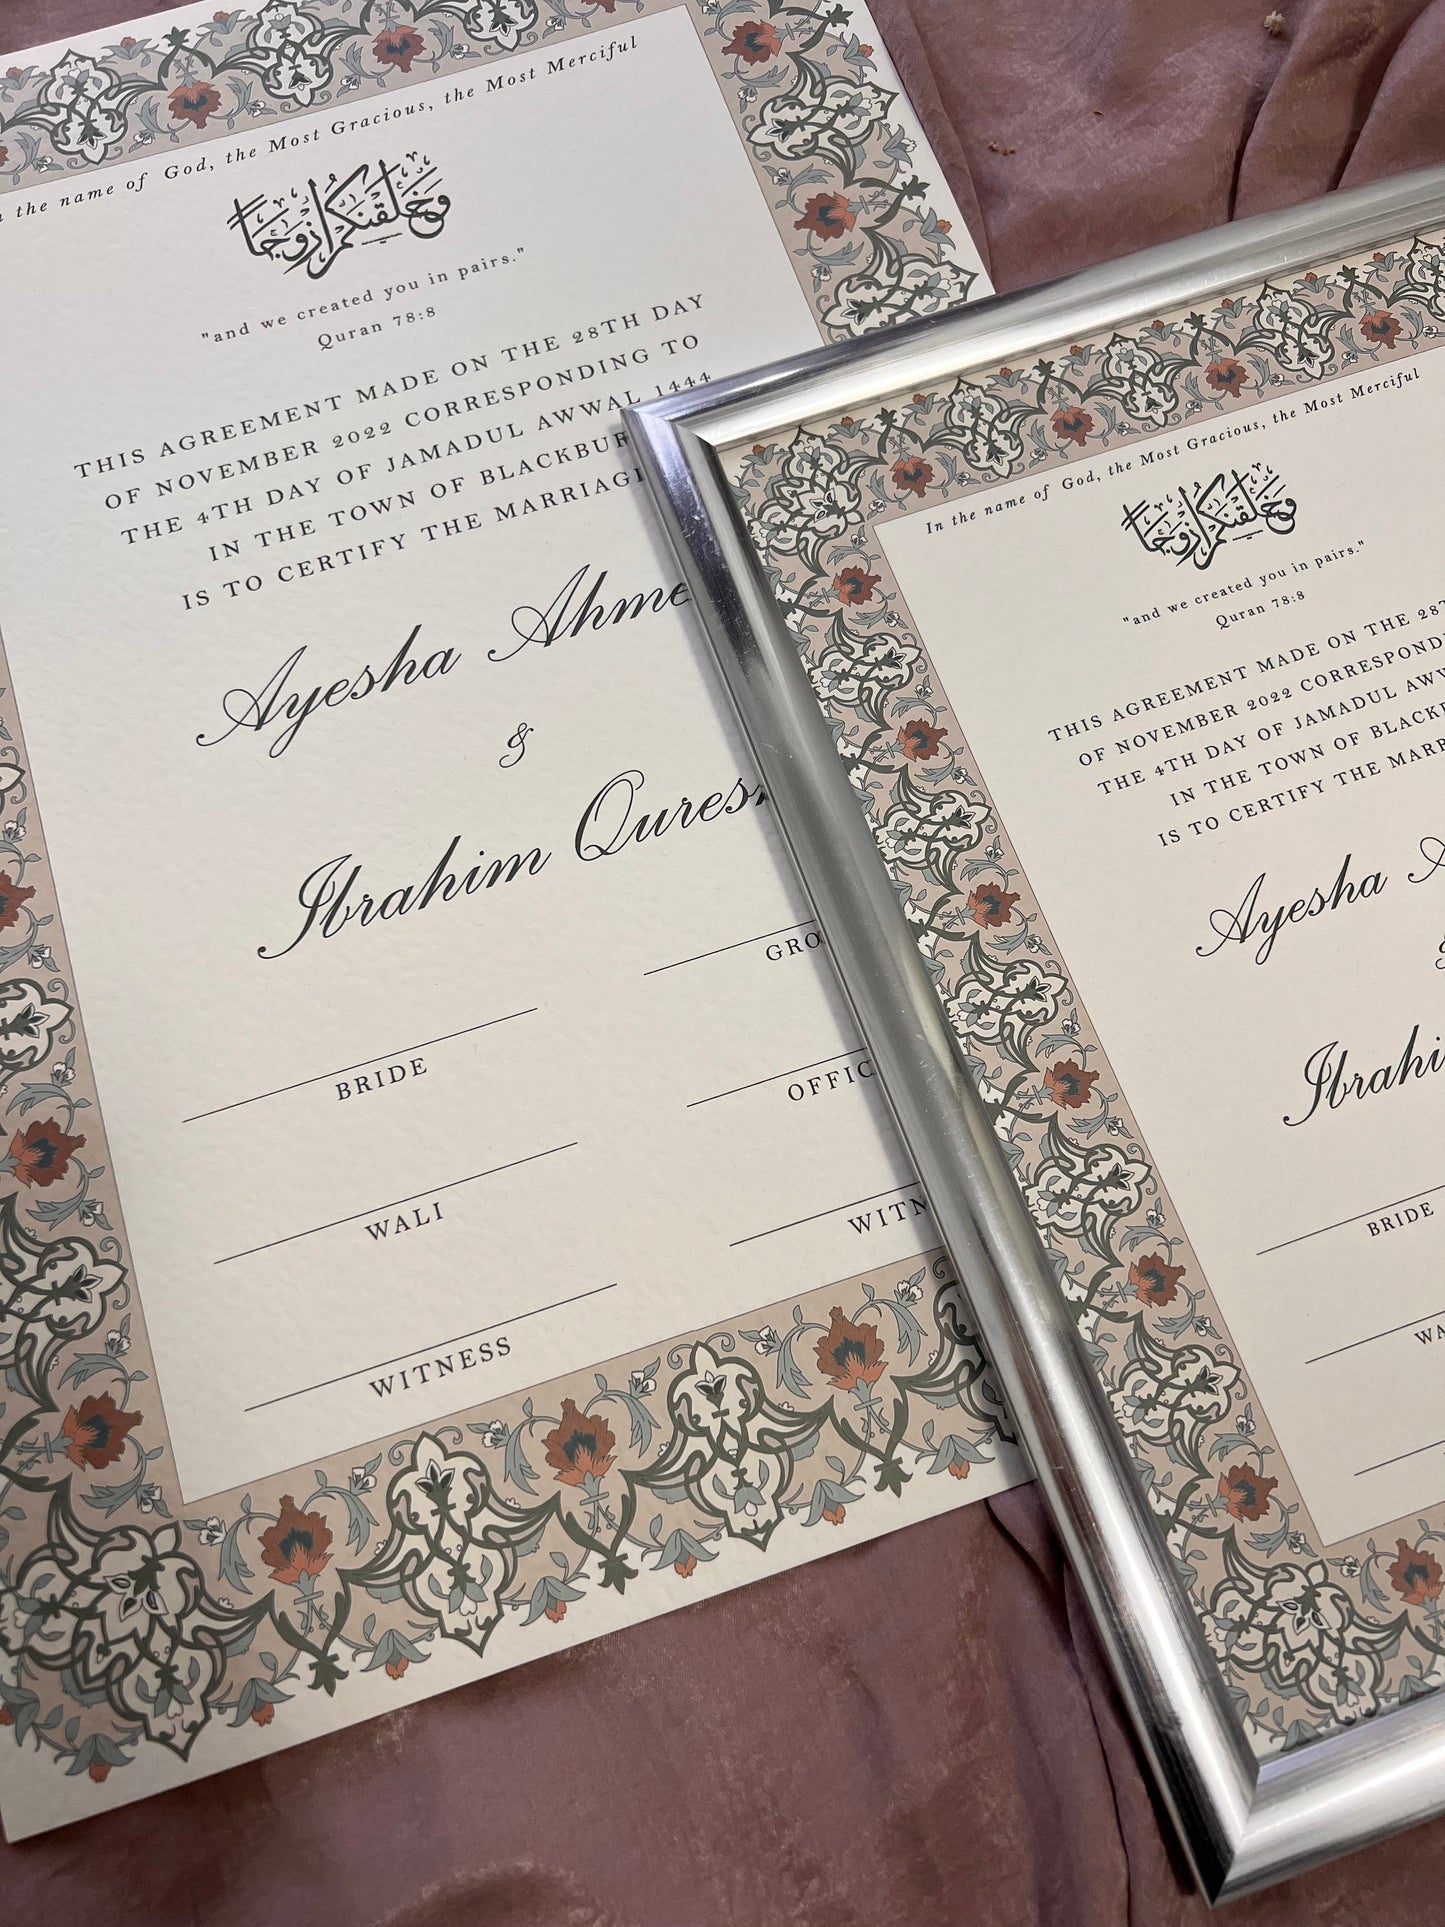 the name of God, the Most Gracious, the Most Merciful
وَخَلَقْنَٰكُمْ أَزْوَٰجًا
"and we created you in pairs."
Quran 78:8
THIS AGREEMENT MADE ON THE 28TH DAY
OF NOVEMBER 2022 CORRESPONDING TO
THE 4TH DAY OF JAMADUL AWWAL 1444
IN THE TOWN OF BLACKBUR
IS TO CERTIFY THE MARRIAG
Ayesha Ahme
&
Ibrahim Qures
GRO
BRIDE
OFFIC
WALI
WITN
WITNESS
In the name of God, the Most Gracious, the Most Merciful
وَخَلَقْنَٰكُمْ أَزْوَٰجًا
"and we created you in pairs."
Quran 78:8
THIS AGREEMENT MADE ON THE 28T
OF NOVEMBER 2022 CORRESPOND
THE 4TH DAY OF JAMADUL AWW
IN THE TOWN OF BLACKB
IS TO CERTIFY THE MARR
Ayesha A
Ibrahi
BRIDE
WA